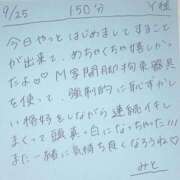 9/25 150分 Y様
今日やっとはじめましてすること
が出来て、めちゃくちゃ嬉しかっ
たよ♡♡ M字開脚拘束器具
を使って、強制的に恥ずかし
い格好をしながら連続イキし
まくって頭真っ白になっちゃった!!!
また一緒に気持ち良くなろうね♡
みと